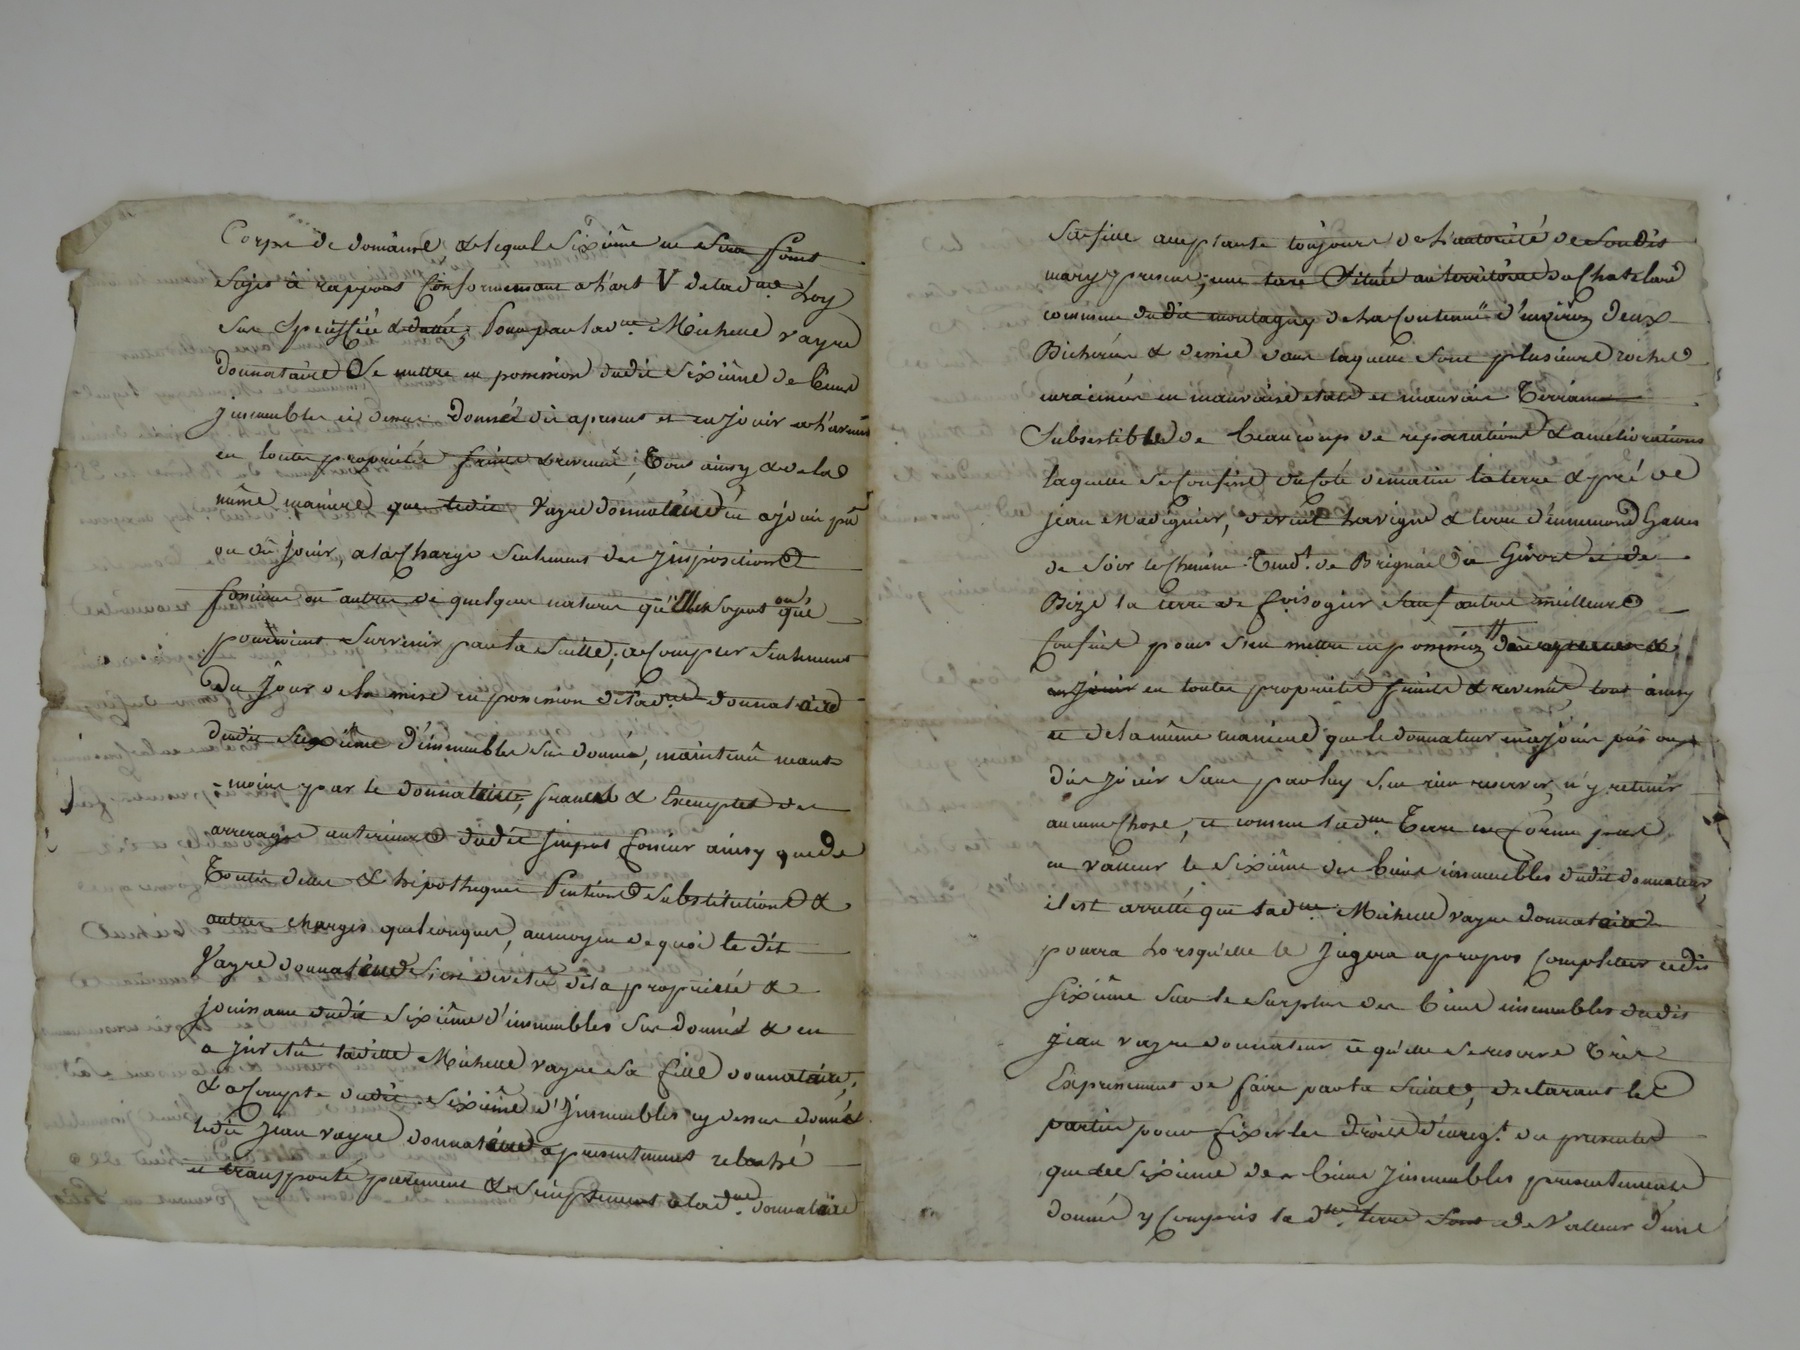 Corps de domaine & lequel sixième ne sera point
sujet à rapport conformement a l'art V de lad.ne Loy
sus specifiée & dattée, pour par lad.ne Michelle vayre
donnataire se mettre en possession dudit sixième de biens
immeubles ci dessus donnés dès apresent et en jouir a l'avenir
en toute propriété fruits & revenus, tout ainsy & de la
même maniere que ledit Vayre donnateur en a joui pû
ou dû jouir, a la charge seulement des jmpositions
foncieres ou autres de quelque nature qu'elles soyent ou que
pourroient survenir par la suitte, a compter seulement
du jour de la mise en possession de lad.ne donnataire
dudit sixième d'immeubles sus donnés, maintenu neant
-moins par le donnateur, francs & exempts des
arrerages anterieurs dudit jmpot foncier ainsy que de
toutes dettes & hipotheques pentions substitutions &
autres charges quelconques, au moyen de quoi le dit
Vayre donnateur s'est devetu de la propriété &
jouissance dudit sixième d'immeubles sus donnés & en
a jnvetu laditte Michelle vayre sa fille donnataire,
& a compte dudit sixième d'jmmeubles cy dessus donnés
ledit jean vayre donnateur a presentement relaché
et transporté purement & simplement a lad.ne donnataire
sa fille acceptante toujours de l'autorité de son dit
mary present, une terre située au territoire du Chatelard
commune dudit montagny de la contenue d'environ deux
Bicherées & demie dans laquelle sont plusieurs roches
enracinées en mauvaise etat et mauvais terrain
subsestible de beaucoup de reparations & ameliorations
laquelle se confine du coté de matin la terre & pré de
jean Madignier, de vent la vigne & terre d'ennemond
de soir le chemin tend.t de Brignais a Givors et de
Bize la terre de sauf autres meilleurs
confins pour s'en mettre en possession dès apresent &
en jouir en toute propriété fruits & revenus, tout ainsy
et de la même maniere que le donnateur en a joui pû ou
dû jouir sans par luy s'en rien reserver, n'y retenir
aucune chose, et comme lad.ne terre ne forme pas
en valleur le sixième des biens immeubles dudit donnateur,
il est arretté que lad.ne Michelle vayre donnataire
pourra lorsqu'elle le jugera apropos completter ledit
sixième sur le surplus des biens immeubles dudit
jean vayre donnateur ce qu'elle se reserve très
expressement de faire par la suitte, declarant les
parties pour fixer les droits d'enreg.t du presentes
que le sixième des biens jmmeubles presentement
donnés y compris la d.ne terre sont de valleur d'une